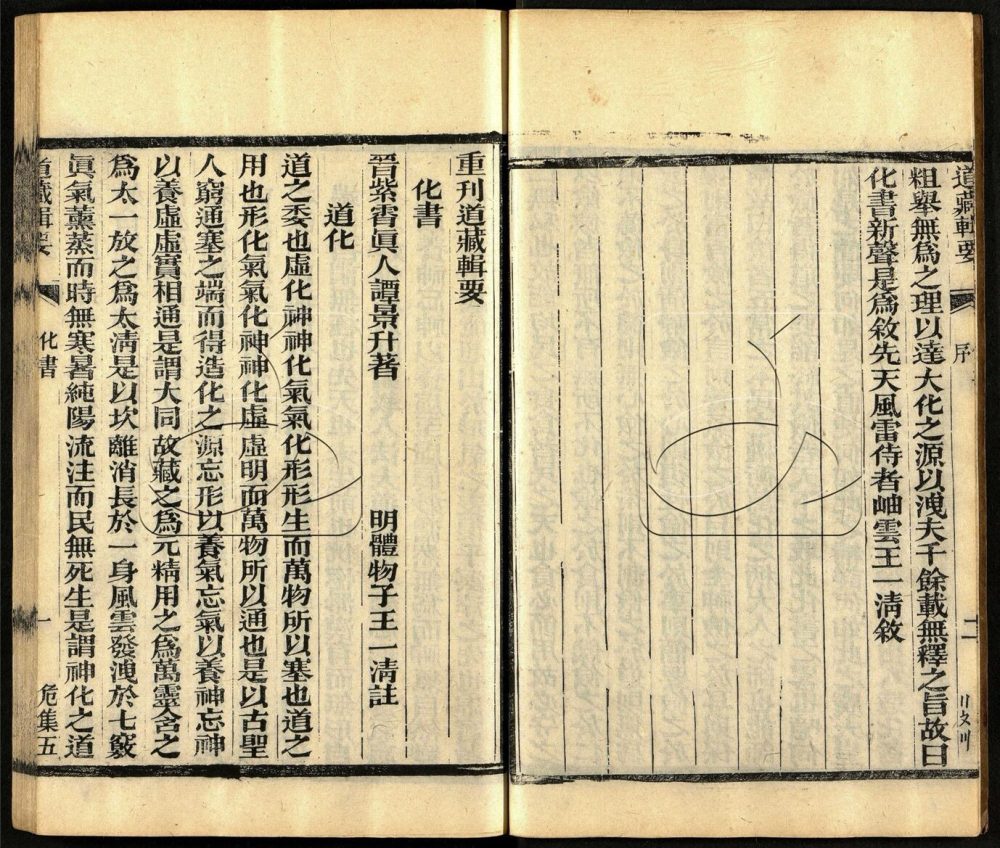 道藏輯要 序 二
粗舉無爲之理以達大化之源以洩夫千餘載無釋之旨故曰
化書新聲是爲敘先天風雷侍者岫雲王一淸敘
重刊道藏輯要
化書
晉紫霄眞人譚景升著 明體物子王一淸註
道化
道之委也虛化神神化氣氣化形形生而萬物所以塞也道之
用也形化氣氣化神神化虛虛明而萬物所以通也是以古聖
人窮通塞之端而得造化之源忘形以養氣忘氣以養神忘神
以養虛虛實相通是謂大同故藏之爲元精用之爲萬靈含之
爲太一放之爲太淸是以坎離消長於一身風雲發洩於七竅
眞氣薰蒸而時無寒暑純陽流注而民無死生是謂神化之道
道藏輯要 化書 一 危集五